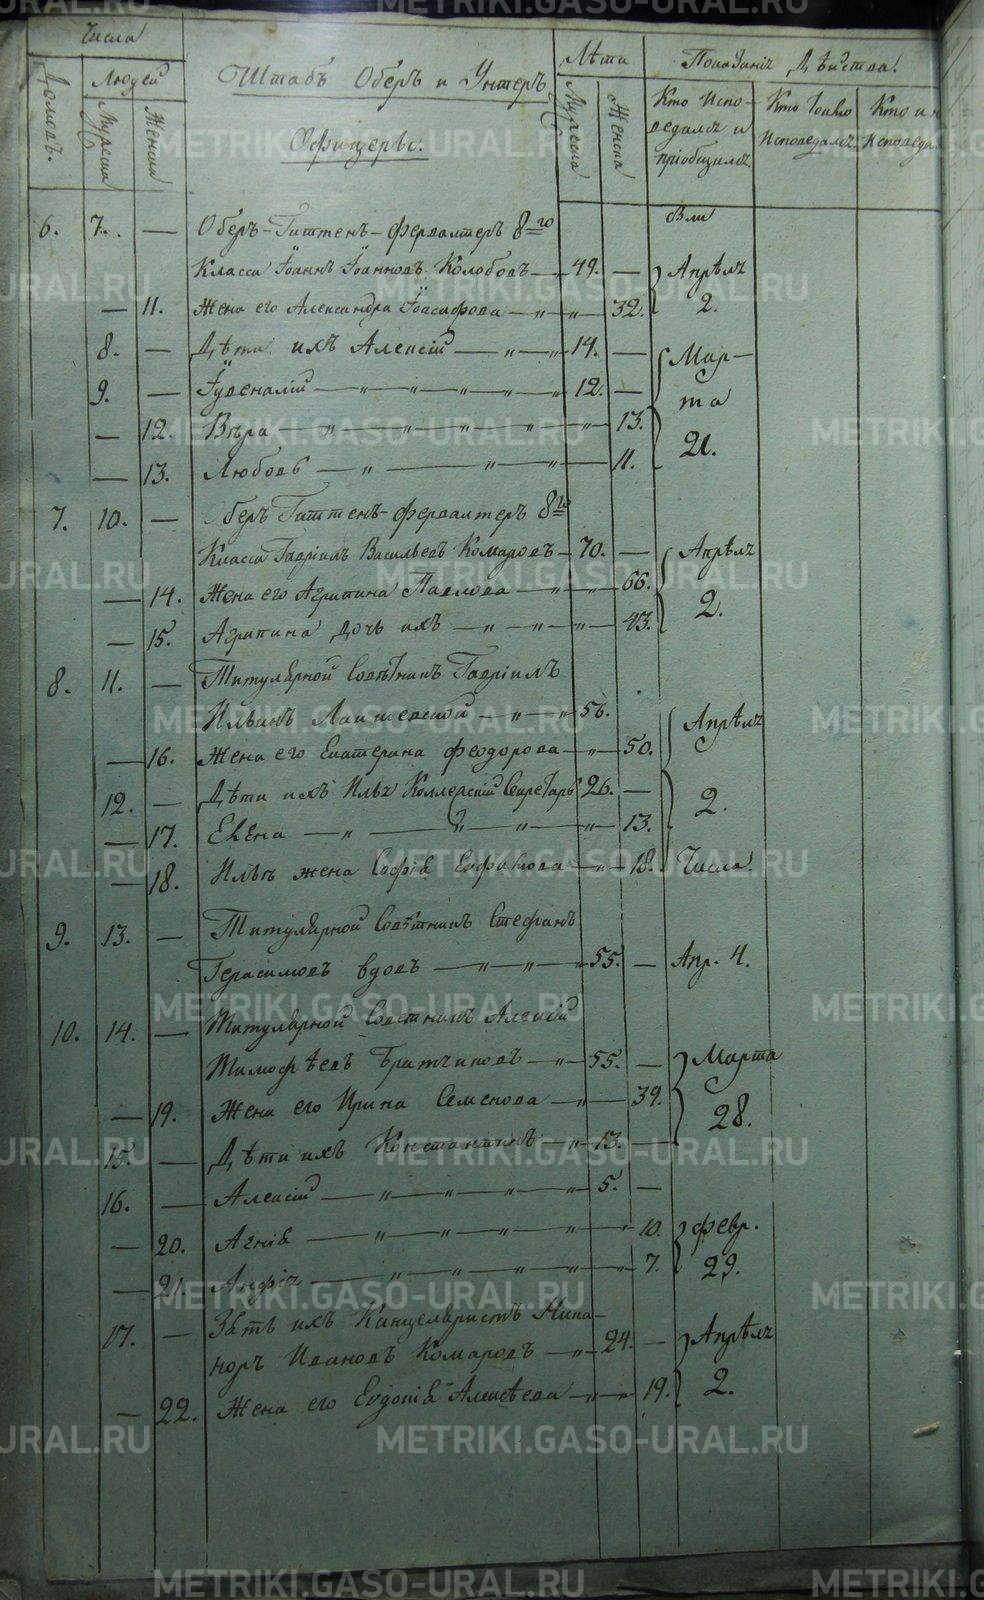 Числа
Домовъ.
Людей
Мужска
Женска
Штабъ Оберъ и Унтеръ
Офицеры.
Лѣти
Мужска
Женска
Показаніе Дѣйства.
Кто Испо-
ведался и
приобщился
Кто токмо
Исповедался
Кто и н
Исповеда
6. 7. — Оберъ-Гиттенъ-фервалтеръ 8го
Класса Іоаннъ Іоанновъ Колобовъ — 49. —
— 11. Жена его Александра Іоасафова — „ — „ — 32.
Апрѣля
2.
8. — Дѣти ихъ Алексій — „ — „ 14. —
9. — Іувеналій — „ — „ — „ — „ 12. —
— 12. Вѣра — „ — „ — „ — „ — „ — 13.
— 13. Любовь — „ — „ — „ — 11.
Мар-
та
21.
7. 10. — Оберъ Гиттенъ-фервалтеръ 8го
Класса Гавріилъ Васильевъ Комаровъ — 70. —
— 14. Жена его Агрипина Павлова — „ — „ — 66.
— 15. Агрипина дочь ихъ — „ — „ — „ — 43.
Апрѣля
2.
8. 11. — Титулярной Совѣтникъ Гавріилъ
Ильинъ Лаишевской — „ — „ 56.
— 16. Жена его Екатерина Феодорова — „ — 50.
12. — Дѣти ихъ Илья Коллежскій Секретарь 26. —
— 17. Елена — „ — „ — „ — „ — 13.
— 18. Ильи жена Софія — „ — 18.
Апрѣля
2.
Числа.
9. 13. — Титулярной Совѣтникъ Стефанъ
Герасимовъ вдовъ — „ — „ — „ 55. — Апр. 4.
10. 14. — Титулярной Советникъ Алексій
Тимофѣевъ Братчиковъ — „ 55. —
— 19. Жена его Ирина Семенова — „ — 39.
15. — Дѣти ихъ Константинъ — „ 13. —
Марта
28.
16. — Алексій — „ — „ — „ — „ 5. —
— 20. Агнія — „ — „ — „ — „ — „ 10.
— 21. Анфія — „ — „ — „ — „ — „ 7.
февр.
29.
17. — Зять ихъ Канцеляристъ Ника-
норъ Ивановъ Комаровъ — „ 24. —
— 22. Жена его Евдокія Алексѣева — „ — „ 19.
Апрѣля
2.
METRIKI.GASO-URAL.RU